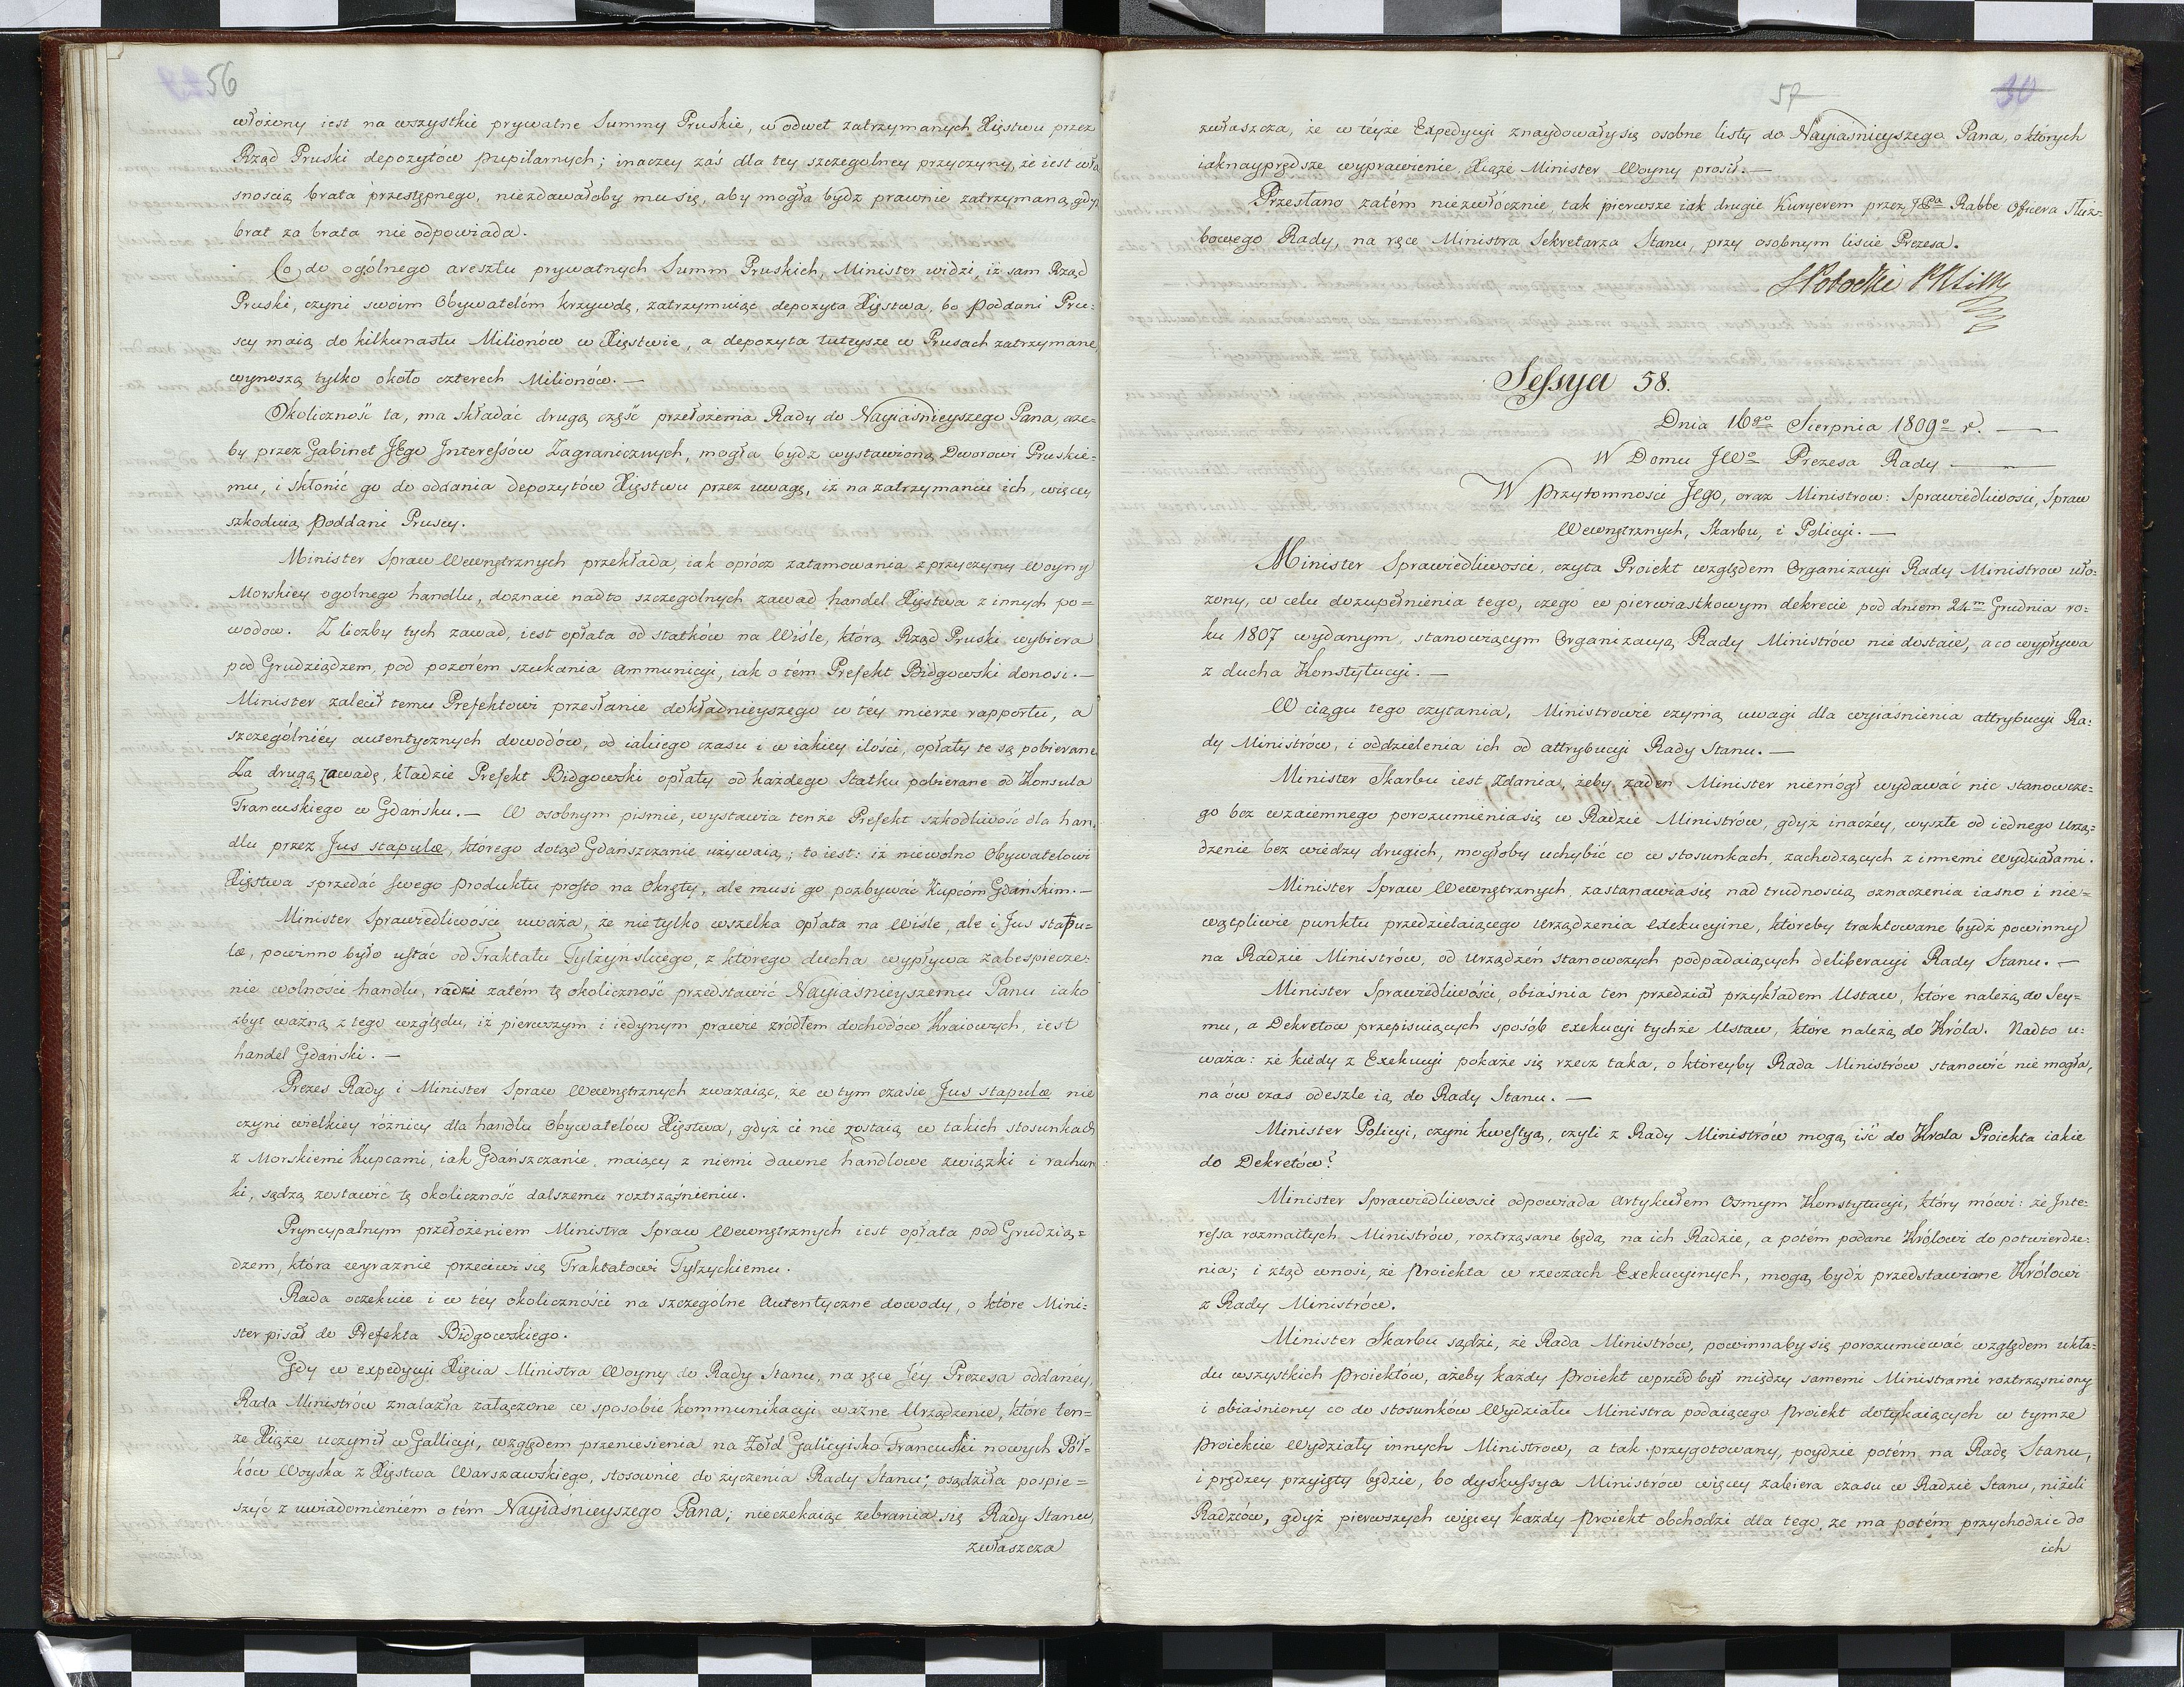 56
włożony iest na wszystkie prywatne Summy Pruskie, w odwet zatrzymanych Xięstwu przez
Rząd Pruski depozytów pupilarnych; inaczey zaś dla tey szczególney przyczyny, że iest wła
snością brata przestępnego, niezdawałoby mu się, aby mogła bydz prawnie zatrzymaną, gdyż
brat za brata nie odpowiada.
Co do ogólnego aresztu prywatnych Summ Pruskich, Minister widzi, iż sam Rząd
Pruski, czyni swoim Obywatelóm krzywdę, zatrzymuiąc depozyta Xięstwa, bo Poddani Pru=
scy maią do kilkunastu Milionów w Xięstwie, a depozyta tuteysze w Prusach zatrzymane,
wynoszą tylko około czterech Milionów. —
Okoliczność ta, ma składać drugą część przełożenia Rady do Nayiaśnieyszego Pana, aże=
by przez Gabinet JEgo Jnteressów Zagranicznych, mogła bydz wystawioną Dworowi Pruskie=
mu, i skłonić go do oddania depozytów Xięstwu przez uwagę, iż na zatrzymaniu ich, więcey
szkoduią Poddani Pruscy.
Minister Spraw Wewnętrznych przekłada, iak oprócz zatamowania z przyczyny Woyny
Morskiey ogolnego handlu, doznaie nadto szczegolnych zawad handel Xięstwa z innych po=
wodow. Z liczby tych zawad, iest opłata od statków na Wiśle, którą Rząd Pruski wybiera
pod Grudziądzem, pod pozorém szukania Ammunicyi, iak o tém Prefekt Bidgowski donosi. —
Minister zalecił temu Prefektowi przesłanie dokładnieyszego w téy mierze rapportu, a
szczególniéy autentycznych dowodów, od iakiego czasu i w iakiey ilości, opłaty te są pobierane.
Za drugą zawadę, kładzie Prefekt Bidgowski opłaty od każdego Statku pobierane od Konsula
Francuskiego w Gdańsku. — W osobnym pismie, wystawia tenże Prefekt szkodliwość dla han=
dlu przez Jus stapulæ, którego dotąd Gdańszczanie używaią; to iest: iż niewolno Obywatelowi
Xięstwa sprzedać swego Produktu prosto na Okręty, ale musi go pozbywać Kupcóm Gdańskim. —
Minister Sprawiedliwości uważa, że nie tylko wszelka opłata na Wiśle, ale i Jus stapu=
læ, powinno było ustać od Traktatu Tylzyńskiego, z którego ducha wypływa zabespiecze=
nie wolności handlu, radzi zatém tę okoliczność przedstawić Nayiasnieyszemu Panu iako
zbyt ważną z tego względu, iż pierwszym i iedynym prawie zródłem dochodów Kraiowych, iest
handel Gdański. —
Prezes Rady i Minister Spraw Wewnętrznych zważaiąc, że w tym czasie Jus stapulæ nie
czyni wielkiey różnicy dla handlu Obywatelów Xięstwa, gdyż ci nie zostaią w takich stosunkach
z Morskiemi Kupcami, iak Gdańszczanie, maiący z niemi dawne handlowe związki i rachun
ki, sądzą zostawić tę okoliczność dalszemu roztrząśnieniu.
Pryncypalnym przełożeniem Ministra Spraw Wewnętrznych iest opłata pod Grudzią=
dzem, która wyraznie przeciwi się Traktatowi Tylzyckiemu.
Rada oczekuie i w tey okoliczności na szczególne Autentyczne dowody, o które Mini=
ster pisał do Prefekta Bidgowskiego.
Gdy w expedycyi Xięcia Ministra Woyny do Rady Stanu, na ręce Jéy Prezesa oddanéy,
Rada Ministrów znalazła załączone w sposobie kommunikacyi ważne Urządzenie, które ten=
że Xiąże uczynił w Gallicyi, względem przeniesienia na Żołd Galicyisko Francuski nowych Puł=
ków Woyska z Xięstwa Warszawskiego, stosownie do życzenia Rady Stanu; osądziła pospie=
szyć z uwiadomieniém o tém Nayiaśnieyszego Pana; nieczekaiąc zebrania się Rady Stanu,
zwłaszcza
57
30
zwłaszcza, że w teyże Expedycyi znaydowały się osobne listy do Nayiasnieyszego Pana, o których
iaknayprędsze wyprawienie, Xiąże Minister Woyny prosił. —
Przesłano zatém niezwłócznie, tak pierwsze iak drugie Kuryerem przez JPa Rabbe Officera Służ=
bowego Rady, na ręce Ministra Sekretarza Stanu, przy osobnym liscie Prezesa.
Sessya 58.
Dnia 16go Sierpnia 1809o r. —
W Domu JWo Prezesa Rady —
W Przytomnosci Jego, oraz Ministrow: Sprawiedliwosci, Spraw
Wewnętrznych, Skarbu, i Policyi. —
Minister Sprawiedliwosci, czyta Proiekt względem Organizacyi Rady Ministrow uło=
zony, w celu dozupełnienia tego, czego w pierwiastkowym dekrecie pod dniem 24m Grudnia ro=
ku 1807 wydanym, stanowiącym Organizacyą Rady Ministrów nie dostaie, a co wypływa
z ducha Konstytucyi. —
W ciągu tego czytania, Ministrowie czynią uwagi dla wyiaśnienia attrybucyi Ra=
dy Ministrów, i oddzielenia ich od attrybucyi Rady Stanu. —
Minister Skarbu iest zdania, żeby żaden Minister niemógł wydawać nic stanowcze=
go bez wzaiemnego porozumienia się w Radzie Ministrów, gdyż inaczéy, wyszłe od iednego Urzą=
dzenie bez wiedzy drugich, mogłoby uchybić co w stosunkach, zachodzących z innemi Wydziałami.
Minister Spraw Wewnętrznych, zastanawia się nad trudnością oznaczenia iasno i nie=
wątpliwie punktu przedzielaiącego Urządzenia exekucyine, któreby traktowane bydż powinny
na Radzie Ministrów, od Urządzéń stanowczych podpadaiących deliberacyi Rady Stanu. —
Minister Sprawiedliwości, obiaśnia ten przedział przykładem Ustaw, które należą do Sey=
mu, a Dekretow przepisuiących sposób exekucyi tychże Ustaw, które należą do Króla. Nadto u=
waża: że kiedy z Exekucyi pokaże się rzecz taka, o któreyby Rada Ministrów stanowić nie mogła,
na ów czas odeszle ią do Rady Stanu. —
Minister Policyi, czyni kwestyą, czyli z Rady Ministrów mogą iść do Krola Proiekta iakie
do Dekretów?
Minister Sprawiedliwosci odpowiada Artykułem Osmym Konstytucyi, który mówi: że Jnte=
ressa rozmaitych Ministrów, roztrząsane będą, na ich Radzie, a potém podane Królowi do potwierdze=
nia; i ztąd wnosi, że Proiekta w rzeczach Exekucyinych, mogą bydź przedstawiane Królowi
z Rady Ministrów.
Minister Skarbu sądzi, że Rada Ministrów, powinnaby się porozumiewać względem ukła=
du wszystkich Proiektów, ażeby każdy Proiekt wprzód był między samemi Ministrami roztrząsniony
i obiaśniony co do stosunków Wydziału Ministra podaiącego Proiekt dotykaiących w tymże
Proiekcie Wydziały innych Ministrow, a tak przygotowany, poydzie potém na Radę Stanu,
i prędzey przyięty będzie, bo dyskussya Ministrów więcey zabiera czasu w Radzie Stanu, niżeli
Radźców, gdyż pierwszych więcey każdy Proiekt obchodzi dla tego, że ma potém przychodzić do
ich